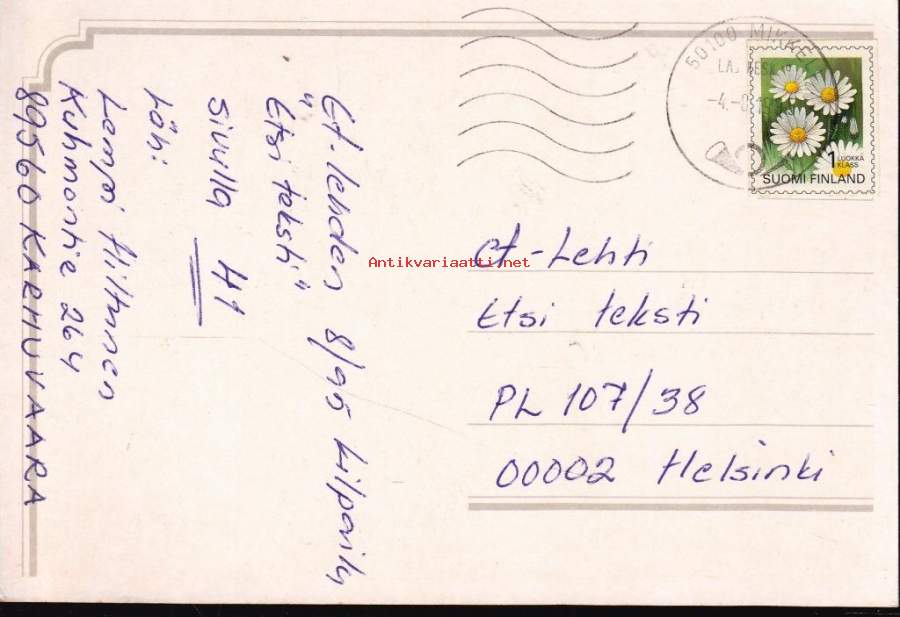 Et-lehden 8/95 kilpailu
"Etsi teksti"
sivulla 41
Läh:
Lempi Hiltunen
Kuhmontie 264
89560 KARHUVAARA
50100 MIKKELI
-4.-
1 LUOKKA
KLASS
SUOMI FINLAND
Antikvariaatti.net
et-Lehti
Etsi teksti
PL 107/38
00002 Helsinki